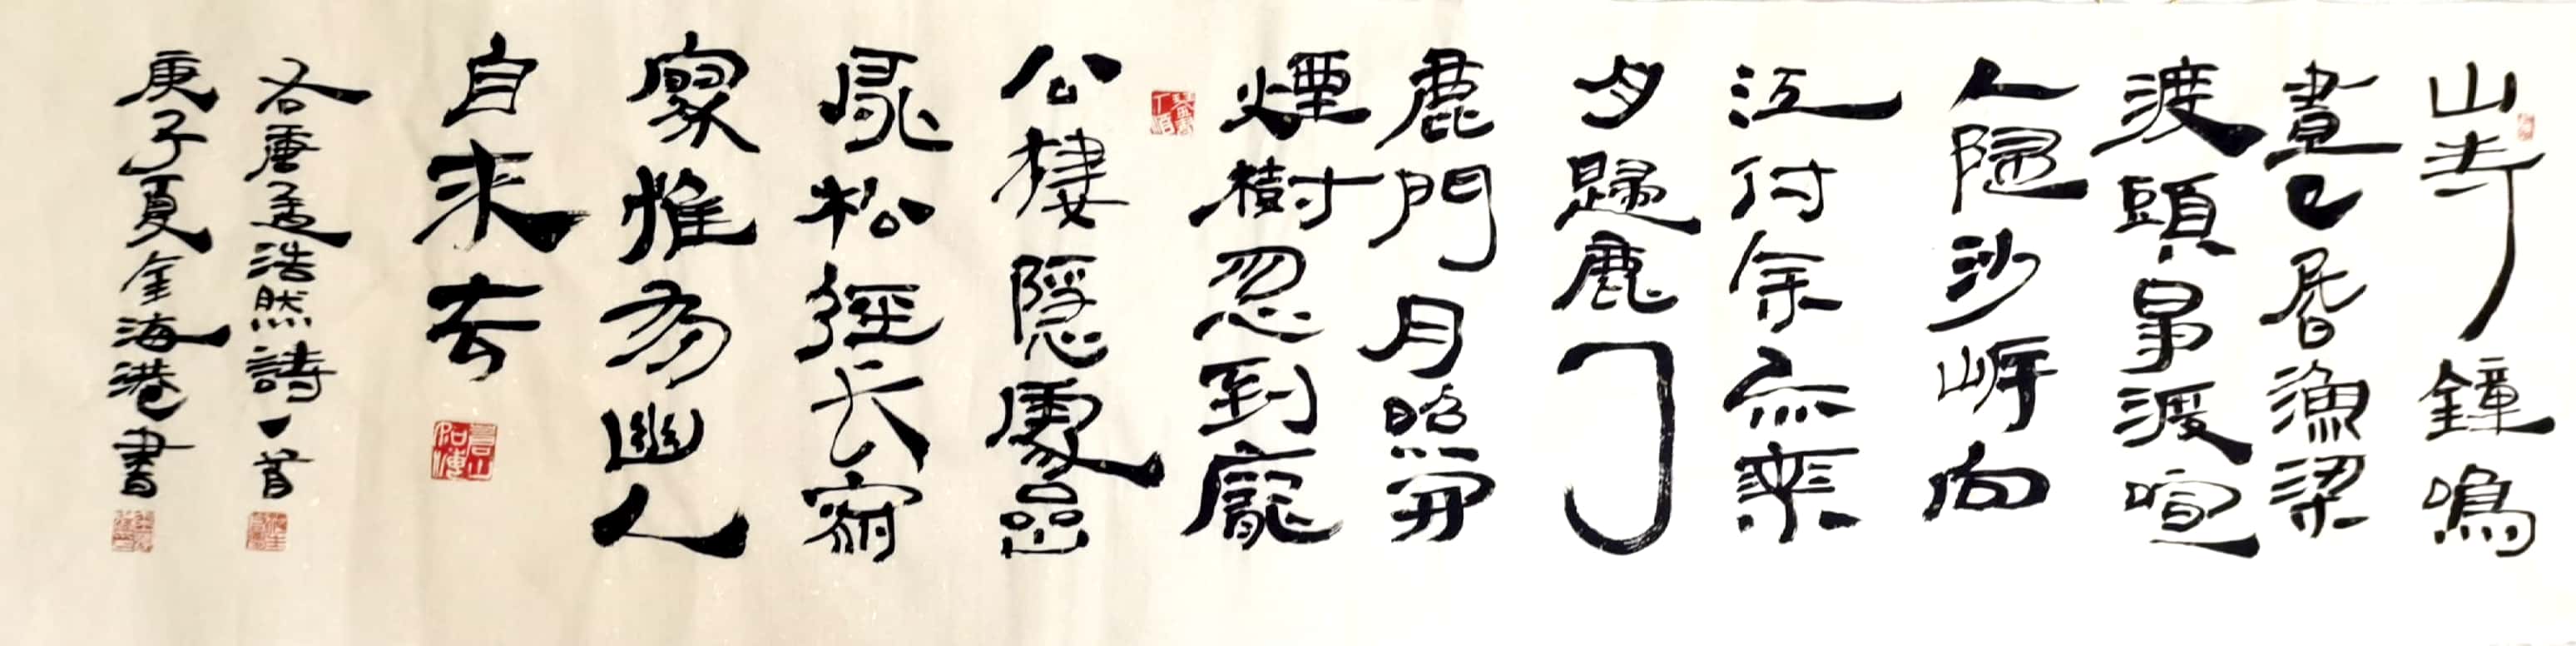 山寺鐘鳴
晝已昏漁梁
渡頭爭渡喧
人隨沙岸向
江村余亦乘
舟歸鹿門
鹿門月照開
煙樹忽到龐
公棲隱處嵒
扉松徑長寂
寥惟有幽人
自來去
右唐孟浩然詩一首
庚子夏金海港書